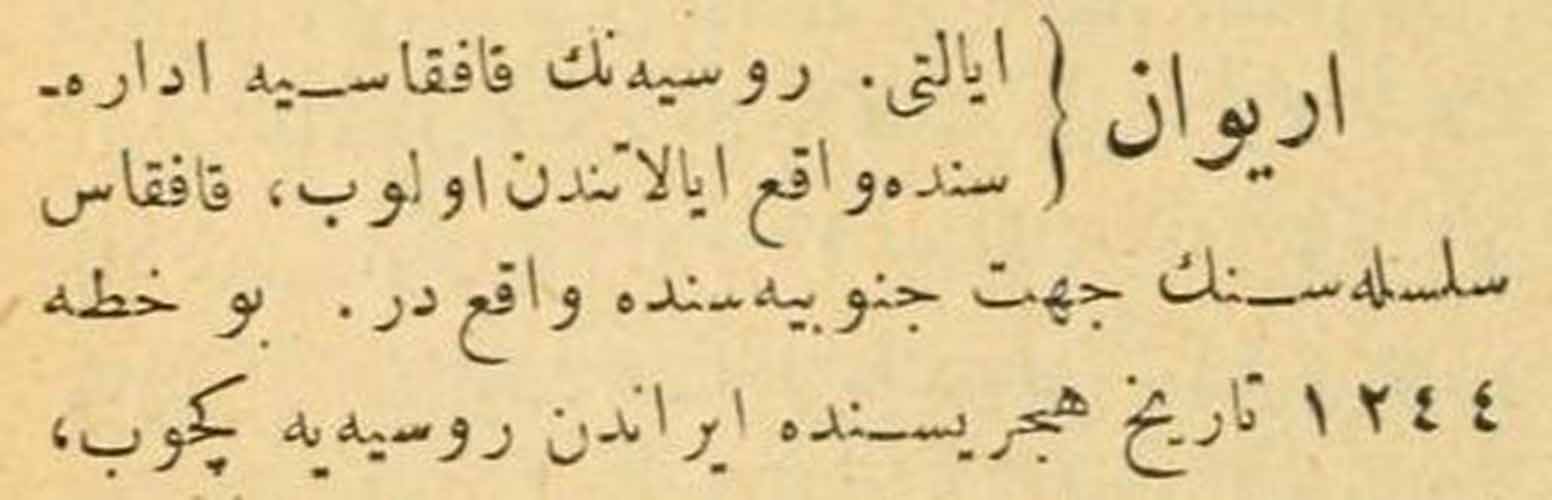 اريوان { ايالتى. روسيه‌نك قافقاسيه اداره‌-
سنده‌واقع ايالاتندن اولوب، قافقاس
سلسله‌سنك جهت جنوبيه‌سنده واقع در. بو خطه
١٢٤٤ تاريخ هجريسنده ايراندن روسيه‌يه كچوب،